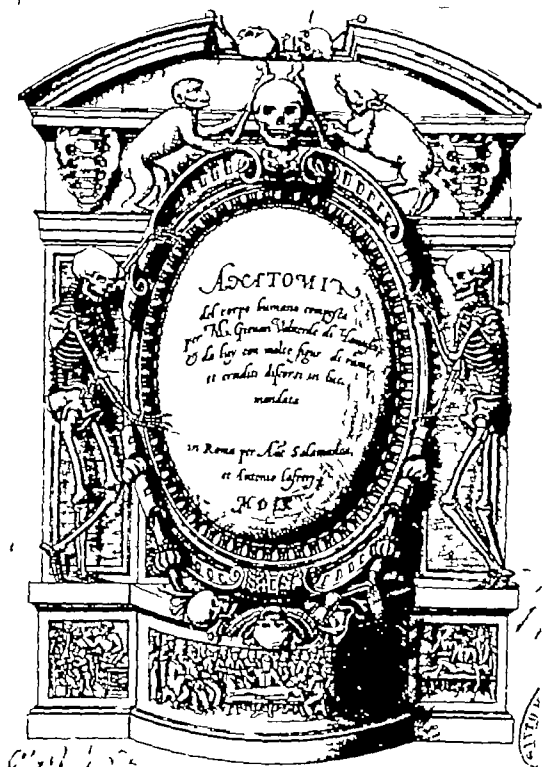 ANATOMIA
del corpo humano composta
per M. Giovan Valverde di
& da luy con molte figure di rame,
et eruditi discorsi in luce
mandata
in Roma per Ant. Salamanca,
et Antonio Lafrerj
M D LX